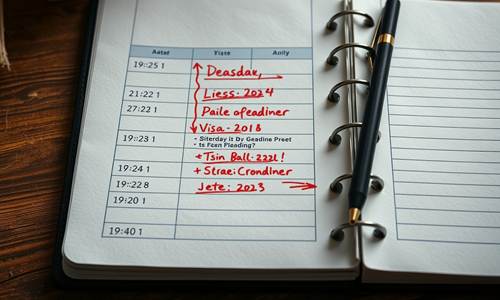 Aatat Yiste Auily
19:25 1
Deasdax,
21:22 1 Liess. 2024
27:22 1 Paile ofeadiner
Visa - 2018
19:23 1 - Siterday it Dv Geadine Preet
- ts Fcen Fleading?
+ Tsin Ball. 222l!
19:24 1 + Strae: Crondiner
19:22 8 Jete: 2023
19:20 1
19:40 1